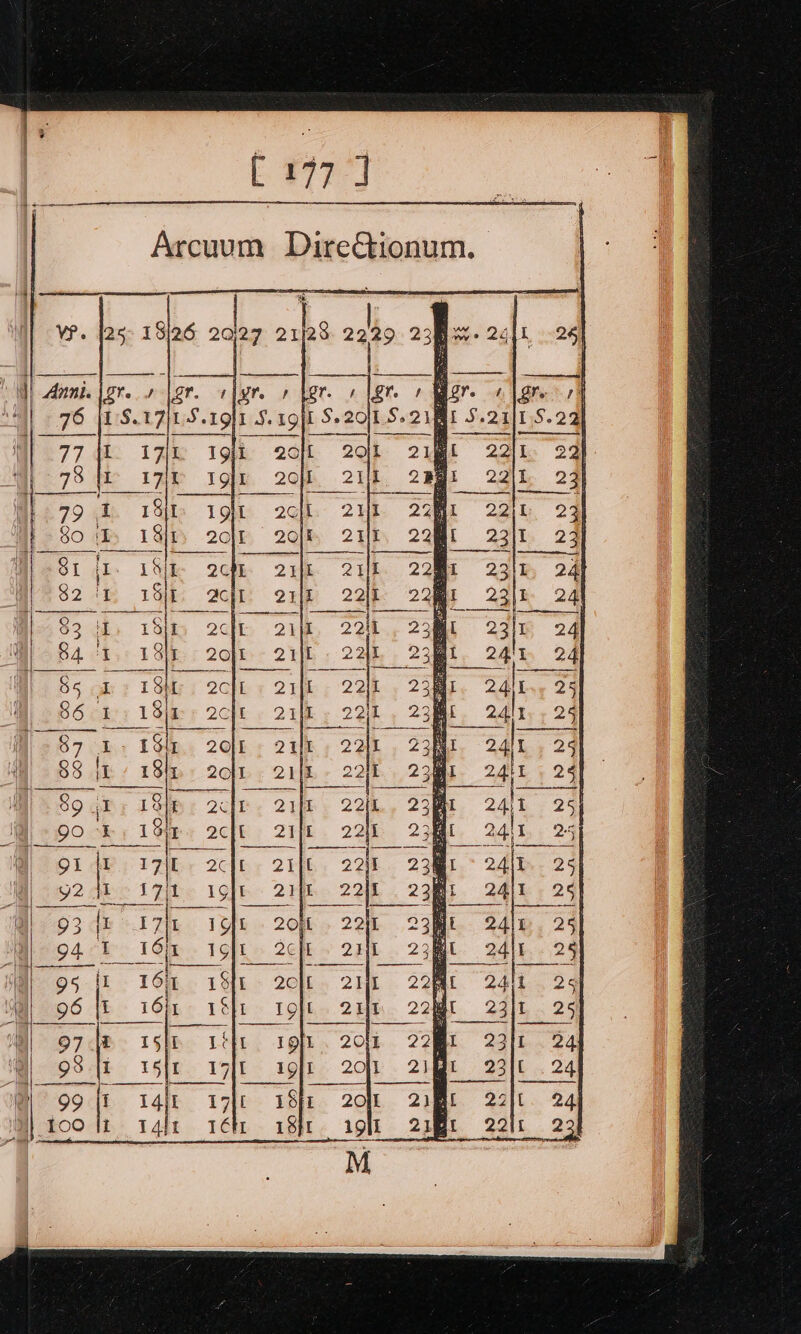 [ 177 ]
Arcuum Directionum.
♑. 25 18 26 20 27 21 28 22 29 23 ♒. 24 1 26
Anni. gr. ′ gr. ′ gr. ′ gr. ′ gr. ′ gr. ′ gr. ′
76 1 S.17 1 S.19 1 S.19 1 S.20 1 S.21 1 S.21 1 S.22
77 1 17 1 19 1 20 1 20 1 21 1 22 1 22
78 1 17 1 19 1 20 1 21 1 2 1 22 1 23
79 1 18 1 19 1 20 1 21 1 22 1 22 1 23
80 1 18 1 20 1 20 1 21 1 22 1 23 1 23
81 1 18 1 20 1 21 1 21 1 22 1 23 1 24
82 1 18 1 20 1 21 1 22 1 22 1 23 1 24
83 1 18 1 20 1 21 1 22 1 23 1 23 1 24
84 1 18 1 20 1 21 1 22 1 23 1 24 1 24
85 1 18 1 20 1 21 1 22 1 23 1 24 1 25
86 1 18 1 20 1 21 1 22 1 23 1 24 1 25
87 1 18 1 20 1 21 1 22 1 23 1 24 1 25
88 1 18 1 20 1 21 1 22 1 23 1 24 1 25
89 1 18 1 20 1 21 1 22 1 23 1 24 1 25
90 1 18 1 20 1 21 1 22 1 23 1 24 1 25
91 1 17 1 20 1 21 1 22 1 23 1 24 1 25
92 1 17 1 19 1 21 1 22 1 23 1 24 1 25
93 1 17 1 19 1 20 1 22 1 23 1 24 1 25
94 1 16 1 19 1 20 1 21 1 23 1 24 1 25
95 1 16 1 18 1 20 1 21 1 22 1 24 1 25
96 1 16 1 18 1 19 1 21 1 22 1 23 1 25
97 1 15 1 18 1 19 1 20 1 22 1 23 1 24
98 1 15 1 17 1 19 1 20 1 21 1 23 1 24
99 1 14 1 17 1 18 1 20 1 21 1 22 1 24
100 1 14 1 16 1 18 1 19 1 21 1 22 1 23
M